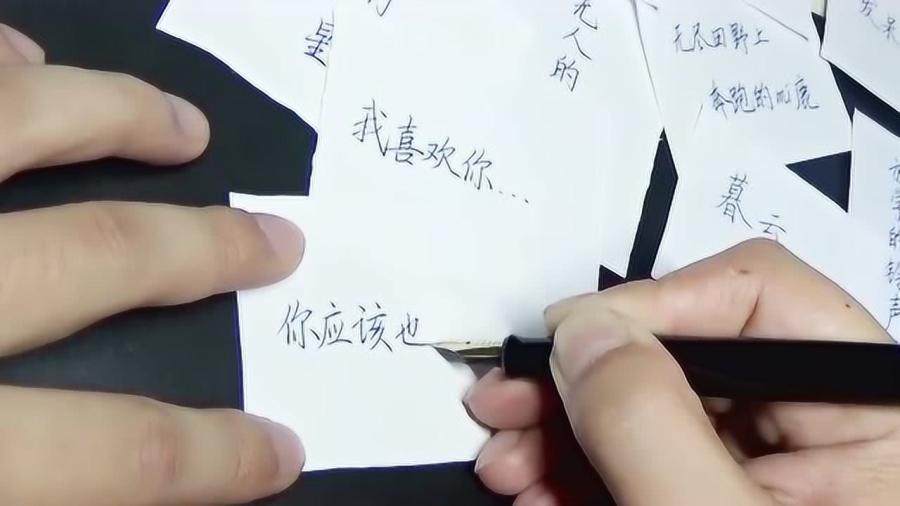 星
无人的
我喜欢你...
你应该也
无尽田野上
奔跑的小鹿
暮云
发呆
学的铃声